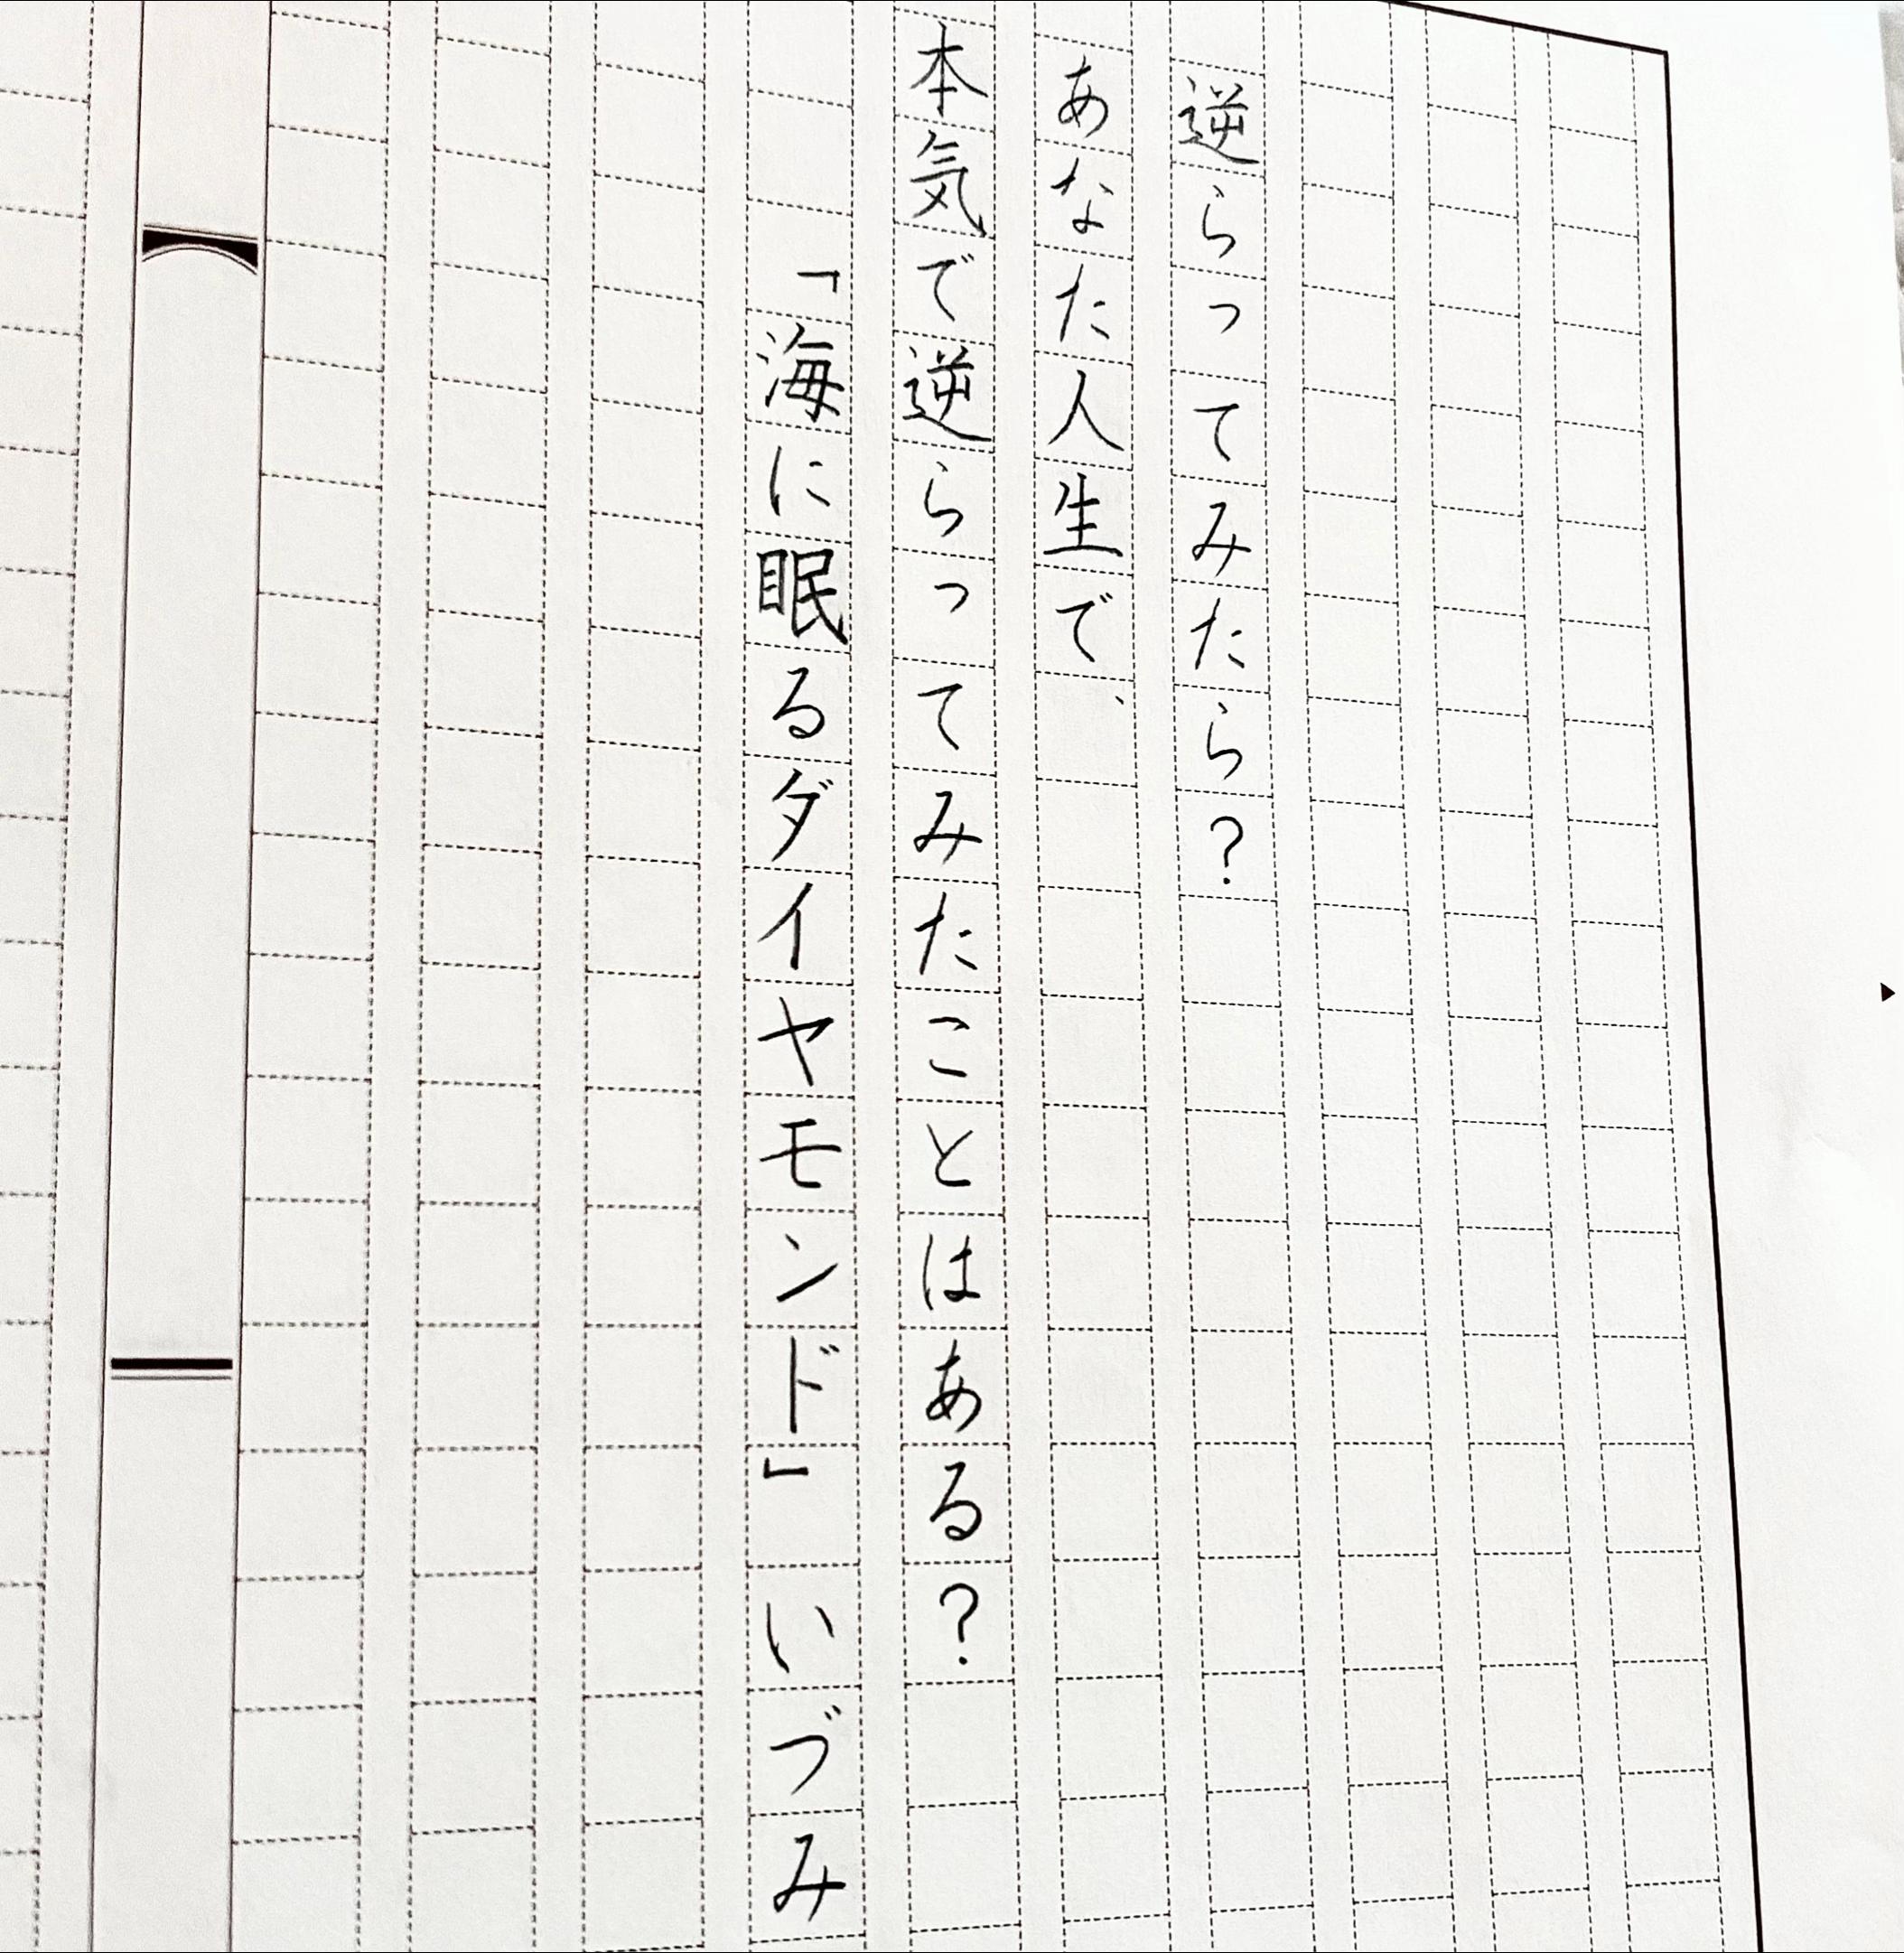 逆らってみたら？
あなた人生で、
本気で逆らってみたことはある？
「海に眠るダイヤモンド」いづみ